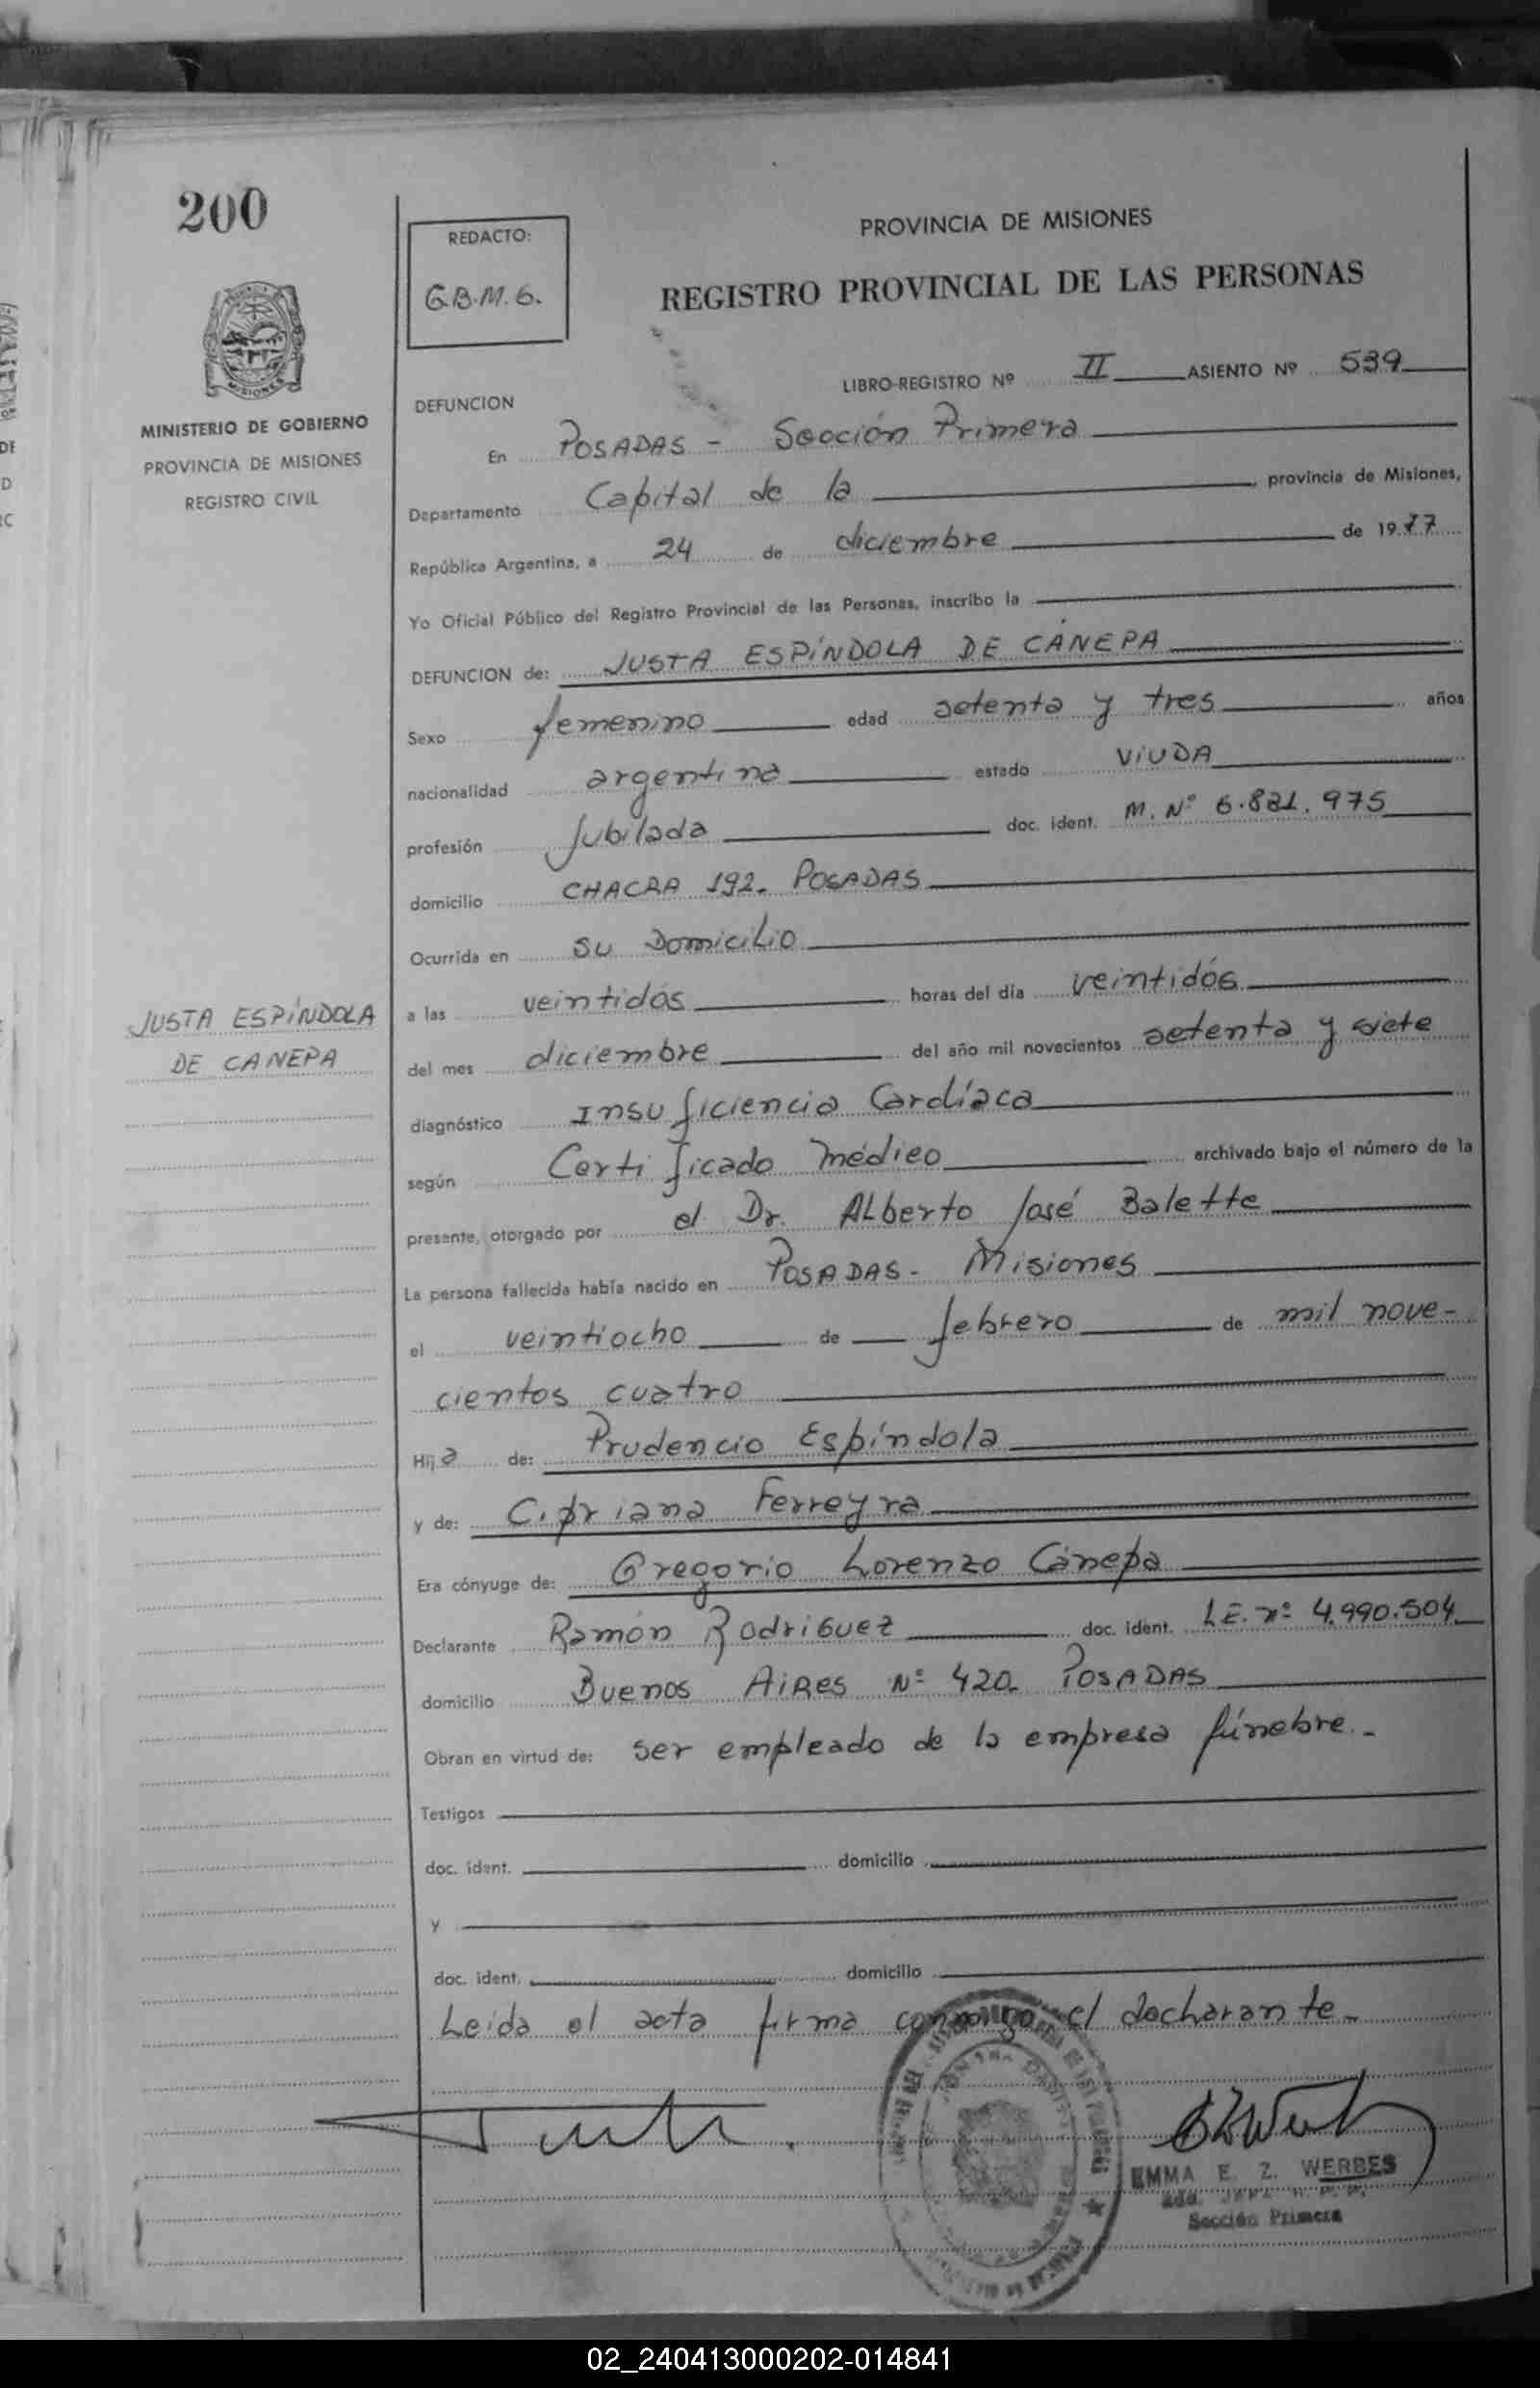 200
REDACTO:
G.B.M.G.
PROVINCIA DE MISIONES
REGISTRO PROVINCIAL DE LAS PERSONAS
MISIONES
MINISTERIO DE GOBIERNO
PROVINCIA DE MISIONES
REGISTRO CIVIL
LIBRO-REGISTRO Nº II ASIENTO Nº 539
DEFUNCION
En POSADAS - Sección Primera
Departamento Capital de la , provincia de Misiones,
República Argentina, a 24 de diciembre de 1977
Yo Oficial Público del Registro Provincial de las Personas, inscribo la
DEFUNCION de: JUSTA ESPÍNDOLA DE CÁNEPA
Sexo femenino edad setenta y tres años
nacionalidad argentina estado VIUDA
profesión Jubilada doc. ident. M. Nº 6.821.975
domicilio CHACRA 192. POSADAS
Ocurrida en su Domicilio
a las veintidós horas del día veintidós
del mes diciembre del año mil novecientos setenta y siete
JUSTA ESPÍNDOLA
DE CANEPA
diagnóstico Insuficiencia Cardíaca
según Certificado Médico archivado bajo el número de la
presente, otorgado por el Dr. Alberto José Balette
La persona fallecida había nacido en POSADAS - Misiones
el veintiocho de febrero de mil nove-
cientos cuatro
Hija de: Prudencio Espíndola
y de: Cipriana Ferreyra
Era cónyuge de: Gregorio Lorenzo Cánepa
Declarante Ramón Rodriguez doc. ident. L.E. nº 4.990.504
domicilio Buenos Aires Nº 420. POSADAS
Obran en virtud de: ser empleado de la empresa fúnebre.-
Testigos
doc. ident. domicilio
y
doc. ident. domicilio
Leída el acta firma conmigo el declarante.-
EMMA E. Z. WERBES
Sección Primera
02_240413000202-014841